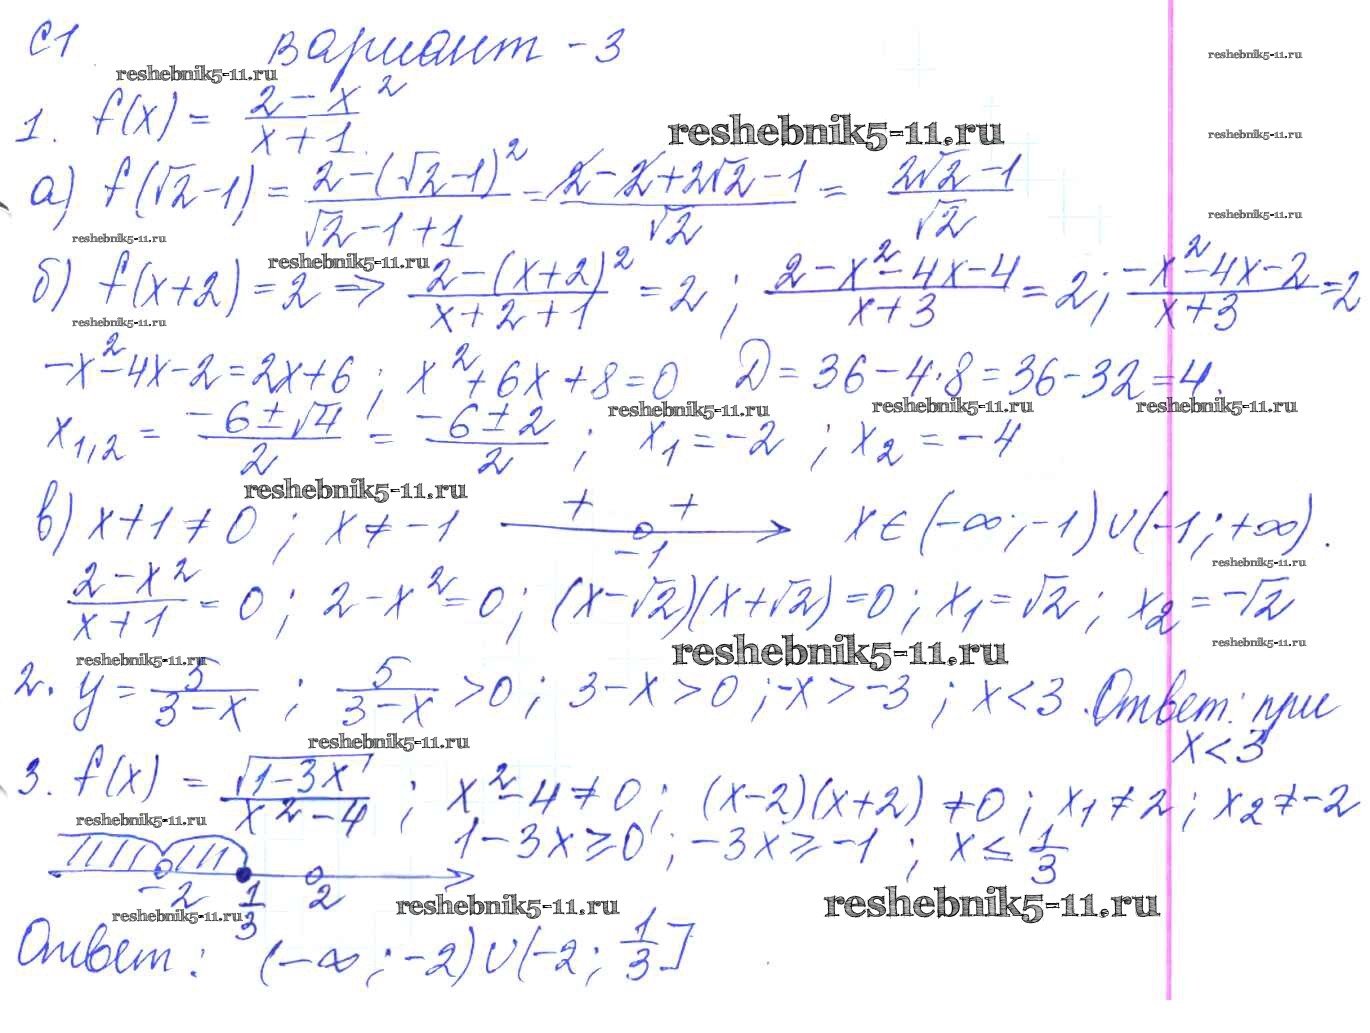 С1 Вариант - 3
reshebnik5-11.ru reshebnik5-11.ru
1. f(x) = (2 - x²)/(x + 1) reshebnik5-11.ru reshebnik5-11.ru
а) f(√2 - 1) = (2 - (√2 - 1)²)/(√2 - 1 + 1) = (2 - 2 + 2√2 - 1)/√2 = (2√2 - 1)/√2 reshebnik5-11.ru
reshebnik5-11.ru reshebnik5-11.ru
б) f(x+2) = 2 ⇒ (2 - (x+2)²)/(x + 2 + 1) = 2 ; (2 - x² - 4x - 4)/(x + 3) = 2 ; (-x² - 4x - 2)/(x + 3) = 2
reshebnik5-11.ru
-x² - 4x - 2 = 2x + 6 ; x² + 6x + 8 = 0 D = 36 - 4·8 = 36 - 32 = 4.
reshebnik5-11.ru reshebnik5-11.ru reshebnik5-11.ru
x₁,₂ = (-6 ± √4)/2 = (-6 ± 2)/2 ; x₁ = -2 ; x₂ = -4
reshebnik5-11.ru
в) x + 1 ≠ 0 ; x ≠ -1 + + -1 x ∈ (-∞ ; -1) ∪ (-1 ; +∞).
reshebnik5-11.ru
(2 - x²)/(x + 1) = 0 ; 2 - x² = 0 ; (x - √2)(x + √2) = 0 ; x₁ = √2 ; x₂ = -√2
reshebnik5-11.ru reshebnik5-11.ru reshebnik5-11.ru
2. y = 5/(3 - x) ; 5/(3 - x) > 0 ; 3 - x > 0 ; -x > -3 ; x < 3 . Ответ: при
x < 3
reshebnik5-11.ru
3. f(x) = √(1 - 3x)/(x² - 4) ; x² - 4 ≠ 0 ; (x - 2)(x + 2) ≠ 0 ; x₁ ≠ 2 ; x₂ ≠ -2
reshebnik5-11.ru
1 - 3x ≥ 0 ; -3x ≥ -1 ; x ≤ 1/3
-2 1/3 2
reshebnik5-11.ru reshebnik5-11.ru reshebnik5-11.ru
Ответ: (-∞ ; -2) ∪ (-2 ; 1/3]